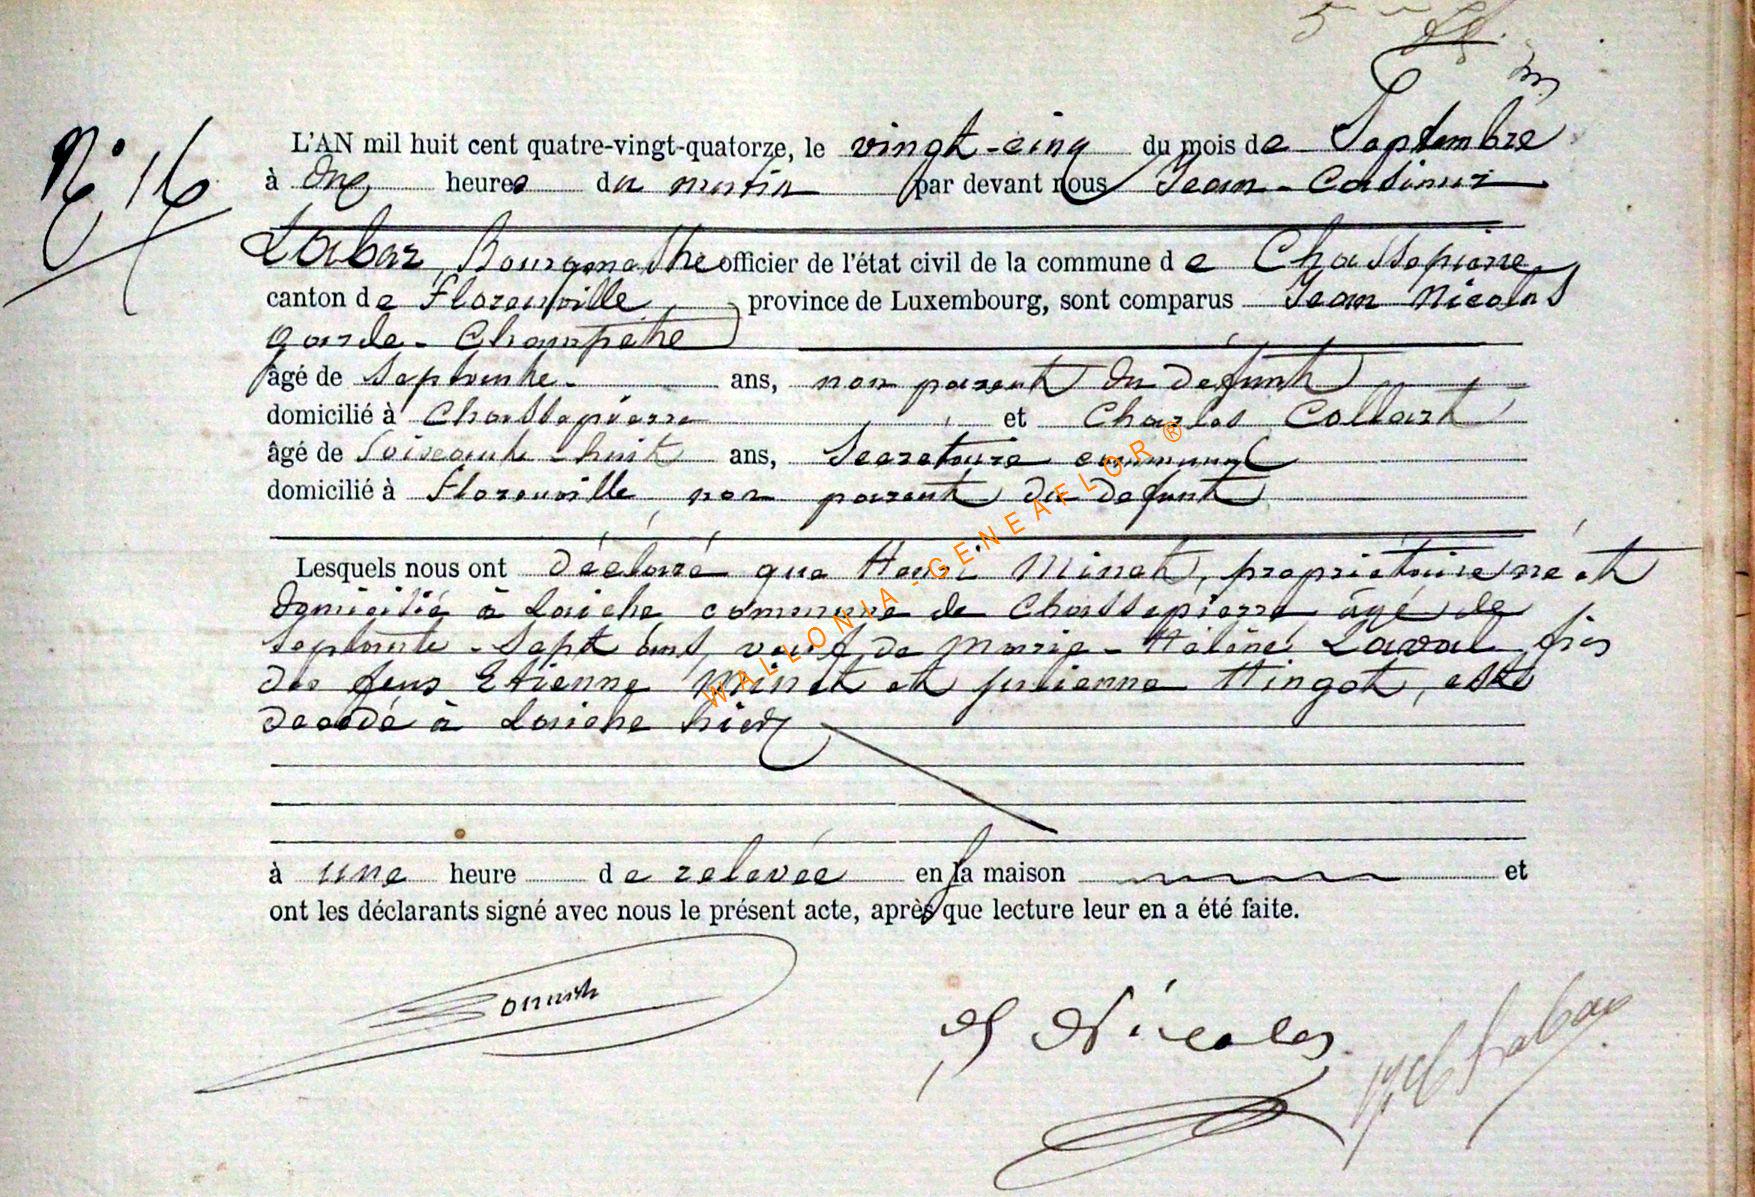 N° 16
L'AN mil huit cent quatre-vingt-quatorze, le vingt-cinq du mois de Septembre
à onze heures du matin par devant nous Jean-Casimir
Labar, Bourgmestre officier de l'état civil de la commune de Chassepierre
canton de Florenville province de Luxembourg, sont comparus Jean Nicolas
garde-Champêtre
âgé de septante ans, non parent du défunt
domicilié à Chassepierre et Charles Collart
âgé de soixante-huit ans, Secretaire communal
domicilié à Florenville non parent du defunt
Lesquels nous ont déclaré que Henri Minet, propriétaire né et
domicilié à Laiche commune de Chassepierre âgé de
septante-sept ans, veuf de Marie-Hélène Laval, fils
des feus Etienne Minet et Julienne Hingot, est
decédé à Laiche hier
à une heure de relevée en sa maison et
ont les déclarants signé avec nous le présent acte, après que lecture leur en a été faite.
Nicolas
Labar
WALLONIA-GENEAFLOR®